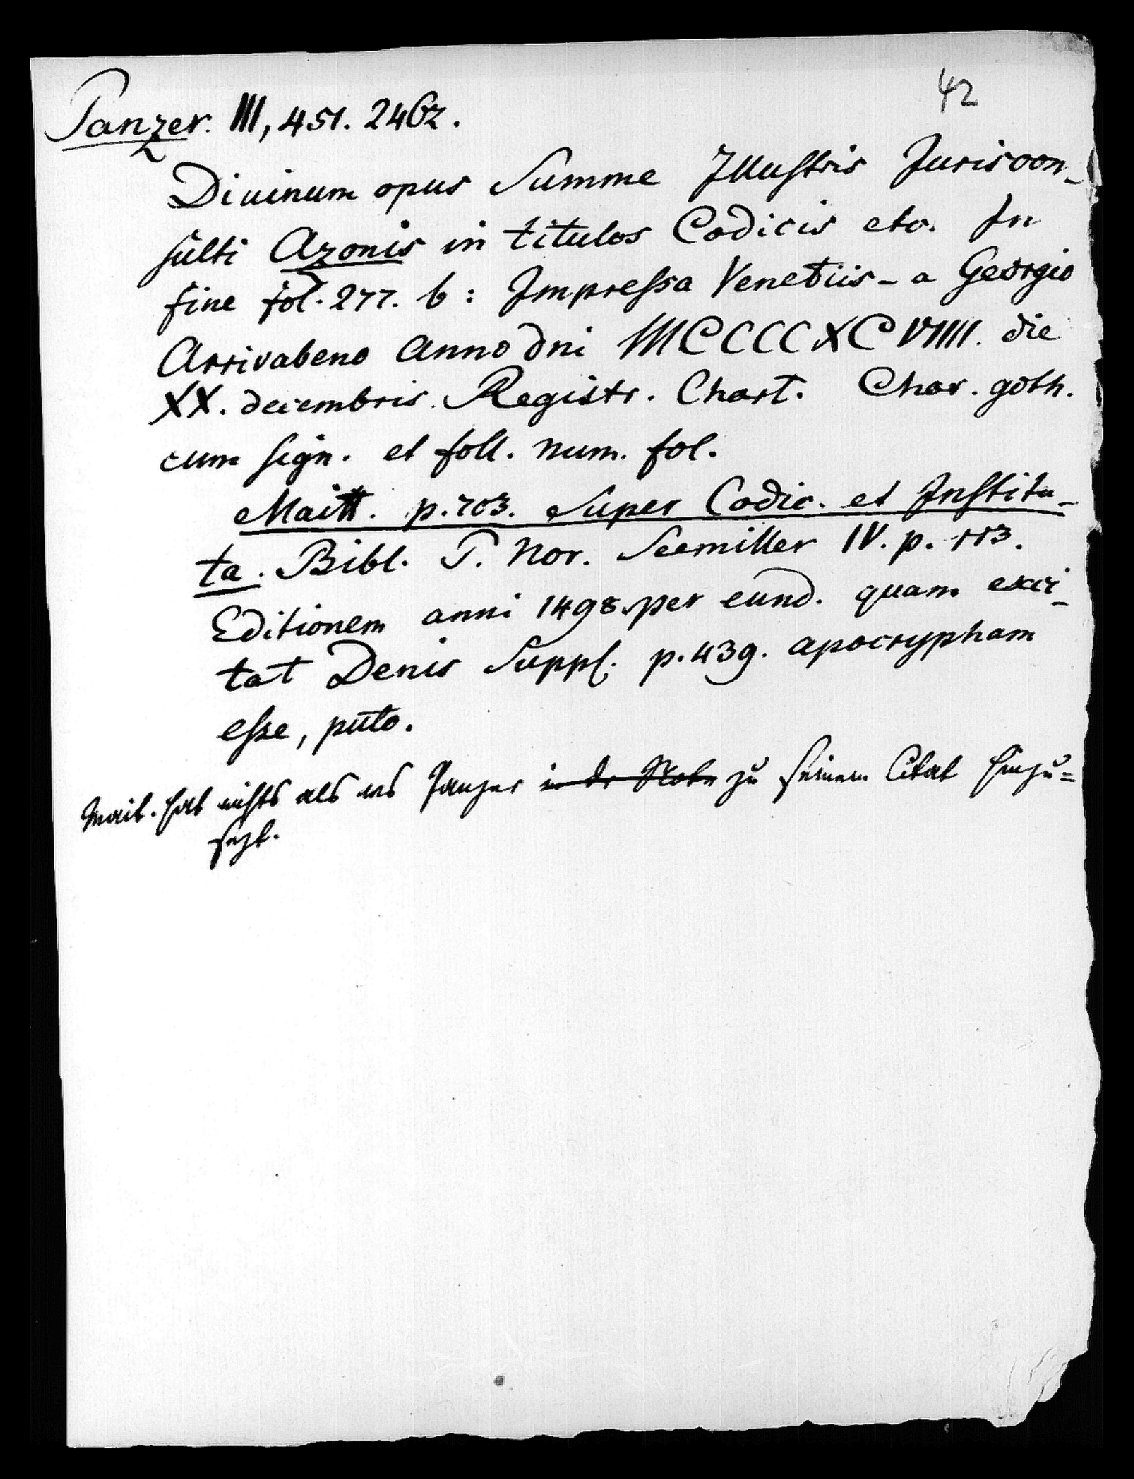 42
Panzer. III, 451. 2462.
Diuinum opus Summe Illustris Juriscon-
sulti Azonis in titulos Codicis etc. In
fine fol. 277. b: Impressa Venetiis - a Georgio
Arrivabeno Anno dni MCCCCXCVIIII. die
XX. decembris. Registr. Chart. Char. goth.
cum sign. et foll. num. fol.
Maitt. p. 703. Super Codic. et Institu-
ta. Bibl. P. Nor. Seemiller IV. p. 113.
Editionem anni 1498. per eund. quam exci-
tat Denis Suppl. p. 439. apocrypham
esse, puto.
Mait. hat nichts als was Panzer in der Note zu seinem Citat hinzu=
sezt.